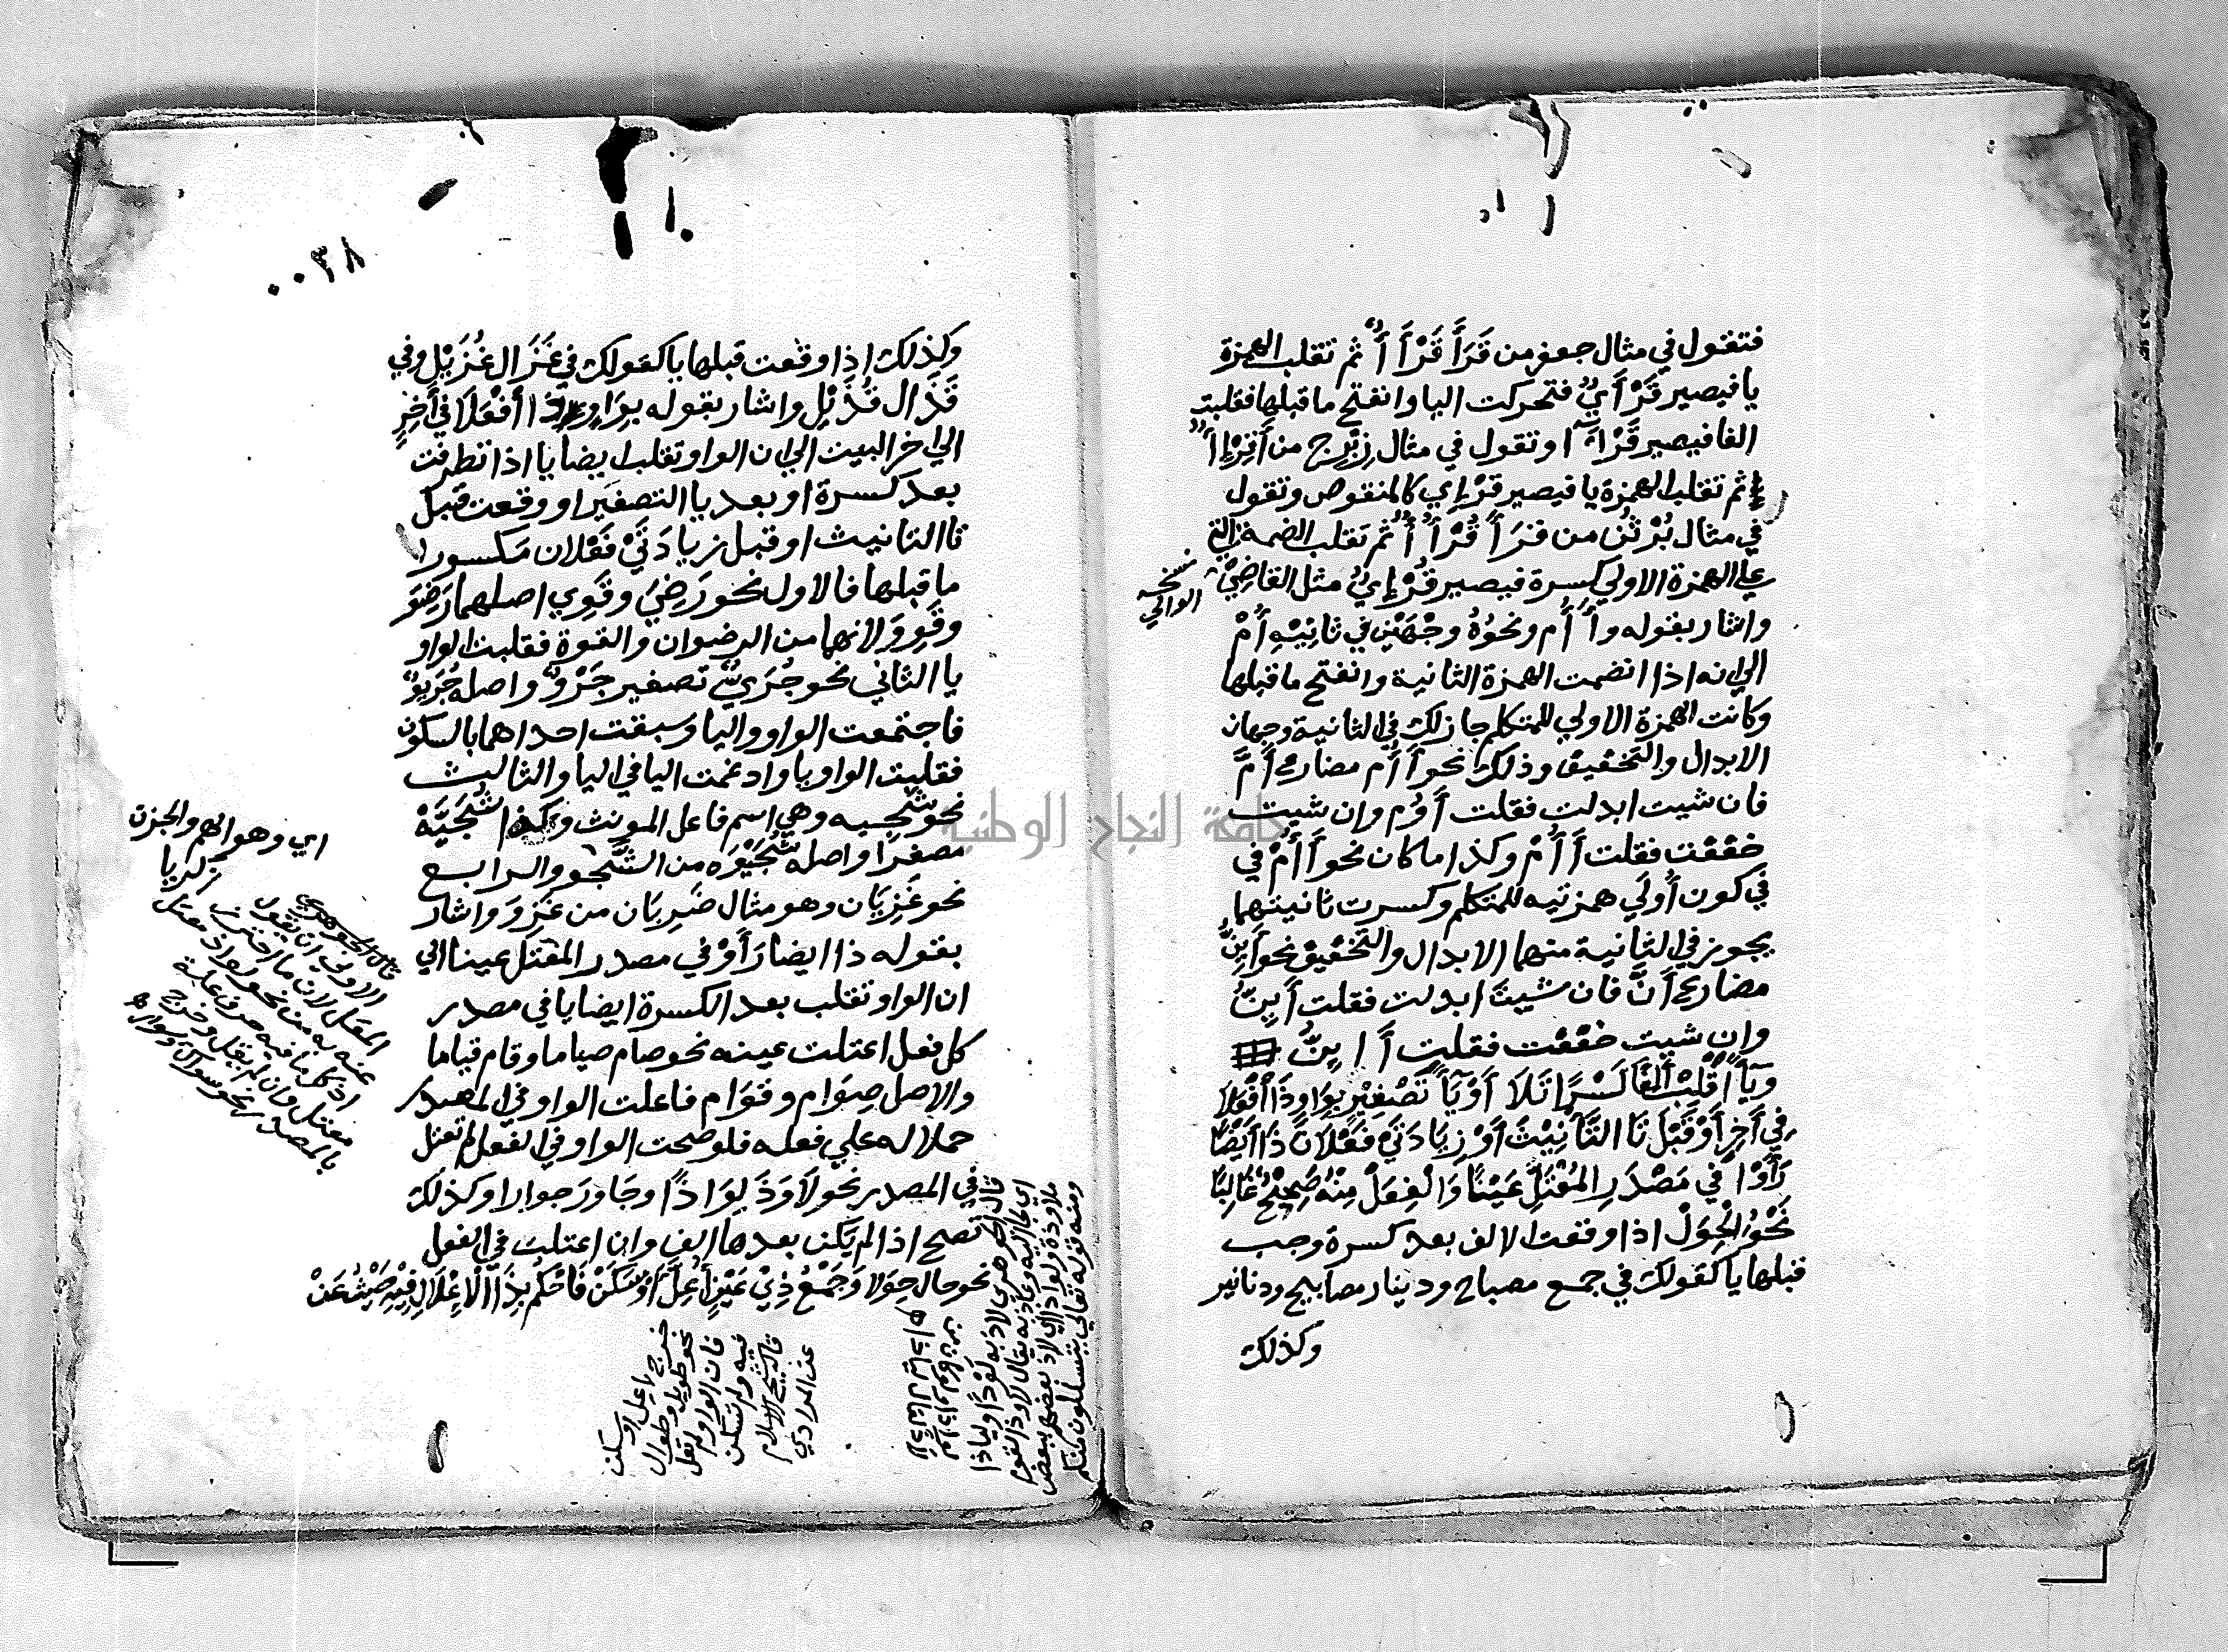 فتقول في مثال جعفر من قَرَأَ قَرْأَأٌ ثم تقلب الهمزة
يا فيصير قَرْأَيٌ فتحركت اليا وانفتح ما قبلها فقلبت
الفا فيصير قَرْاءً ا وتقول في مثال زِبْرِج من
ثم تقلب الهمزة يا فيصير قِرْإِي كالمنقوص وتقول
في مثال بُرْثُن من قَرَأَ قُرْأُأٌ ثم تقلب الضمة التي
علي الهمزة الاولي كسرة فيصير قُرْإِيٌ مثل القاضِيْ
نسخه
الوالي
واشار بقوله وأَأُم ونحوُهُ وجْهَيْنِ في ثانِيْهِ أُمْ
الي انه اذا انضمت الهمزة الثانية وانفتح ما قبلها
وكانت الهمزة الاولي للمتكلم جاز لك في الثانية وجهان
الابدال والتحقيق وذلك نحو أَأُم مضارع أَمَّ
فان شيت ابدلت فقلت أَوُم وان شيت
خففت فقلت أَأُمْ وكذا ما كان نحو أَأُمْ في
في كون أُولَي همزتيه للمتكلم وكسرت ثانيتهما
يجوز في الثانية منهما الابدال والتخفيق نحو أَيِنُّ
مضارع أَنَّ فان شيتَ ابدلت فقلت أَيِنُّ
وان شيت خففت فقلت أَاِنُّ
وَيَاً اقْلِبْ أَلِفًا كَسْرًا تَلَا أَوْ يَاً تَصْغِيْرٍ بِوَاوٍ ذَا افْعَلَا
فِي آخِرٍ أَوْ قَبْلَ تَا التَّأْنِيْثِ أَوْ زِيَادَتَيْ فَعْلَانَ ذَا أَيْضًا
رَأَوْا فِي مَصْدَرِ المُعْتَلِّ عَيْنًا وَالْفِعَلْ مِنْهُ صَحِيْحٌ غَالِبًا
نَحْوُ الْحِوَلْ اذا وقعت الالف بعد كسرة وجب
قبلها يا كقولك في جمع مصباح ودينار مصابيح ودنانير
وكذلك
٠٠٣٨
وكذلك اذا وقعت قبلها يا كقولك في غَزَال غُزَيْل وفي
قَذَال قُذَيْل واشار بقوله بِوَاوٍ ذَا افْعَلَا في آخِرٍ
الي اخر البيت الي ان الواو تقلب ايضا يا اذا تطرفت
بعد كسرة او بعد يا التصغير او وقعت قبل
تا التانيث او قبل زيادَتَيْ فَعْلان مكسورا
ما قبلها فالاول نحو رَضِيَ وقَوِي اصلهما رَضِوَ
وقَوِوَ لانهما من الرضوان والقوة فقلبت الواو
يا الثاني نحو جُرَيٌّ تصغير جَرْوٌ واصله جُرَيْوٌ
فاجتمعت الواو واليا وسبقت احداهما بالسكون
فقلبت الواو يا وادغمت اليا في اليا والثالث
نحو شجيه وهي اسم فاعل المونث وكذا شُجَيَّةْ
مصغرًا واصله شُجَيْوَه من الشَّجْو والرابع
نحو غَزِيَان وهو مثال ضَرِبَان من غَزَوَ واشار
بقوله ذا ايضا رَأَوْ في مصدر المعتل عينا الي
ان الواو تقلب بعد الكسرة ايضا يا في مصدر
كل فعل اعتلت عينه نحو صام صياما وقام قياما
والاصل صِوَام وقِوَام فاعلت الواو في المصدر
حملا له علي فعله فلو صحت الواو في الفعل لم تعتل
في المصدر نحو لَاوَذَ لِوَاذًا وجَاوَرَ جوارا وكذلك
تصح اذا لم يكن بعدها الف وان اعتلت في الفعل
نحو حال حِوَلا وَجَمْعُ ذِيْ عَيْنٍ أُعِلَّ أَوْ سَكَنْ فَاحْكُمْ بِذَا الْإِعْلَالِ فِيْهِ حَيْثُ عَنْ
اي وهو الهم والحزن
زكريا
قال الجوهري
الاولي ان يقول
المعل لان ما احترز
عنه به من نحو لواذ معتل
اذ كل ما فيه حرف علة
معتل وان لم يعل وخرج
بالمصدر نحو سواك وسوار
خرج باعل او سكن
نحو طويل وطوال
فان الواو لم تعل
فيه ولم تسكن
قاله شيخ الاسلام
عند المرادي
قال الجوهري لاذ به لوذا ولياذا
اي لجا اليه وعاذ به يقال لاوذ القوم
ملاوذة ولواذا اي لاذ بعضهم ببعض
ومنه قوله تعالي يتسللون منكم
جامعة النجاح الوطنية